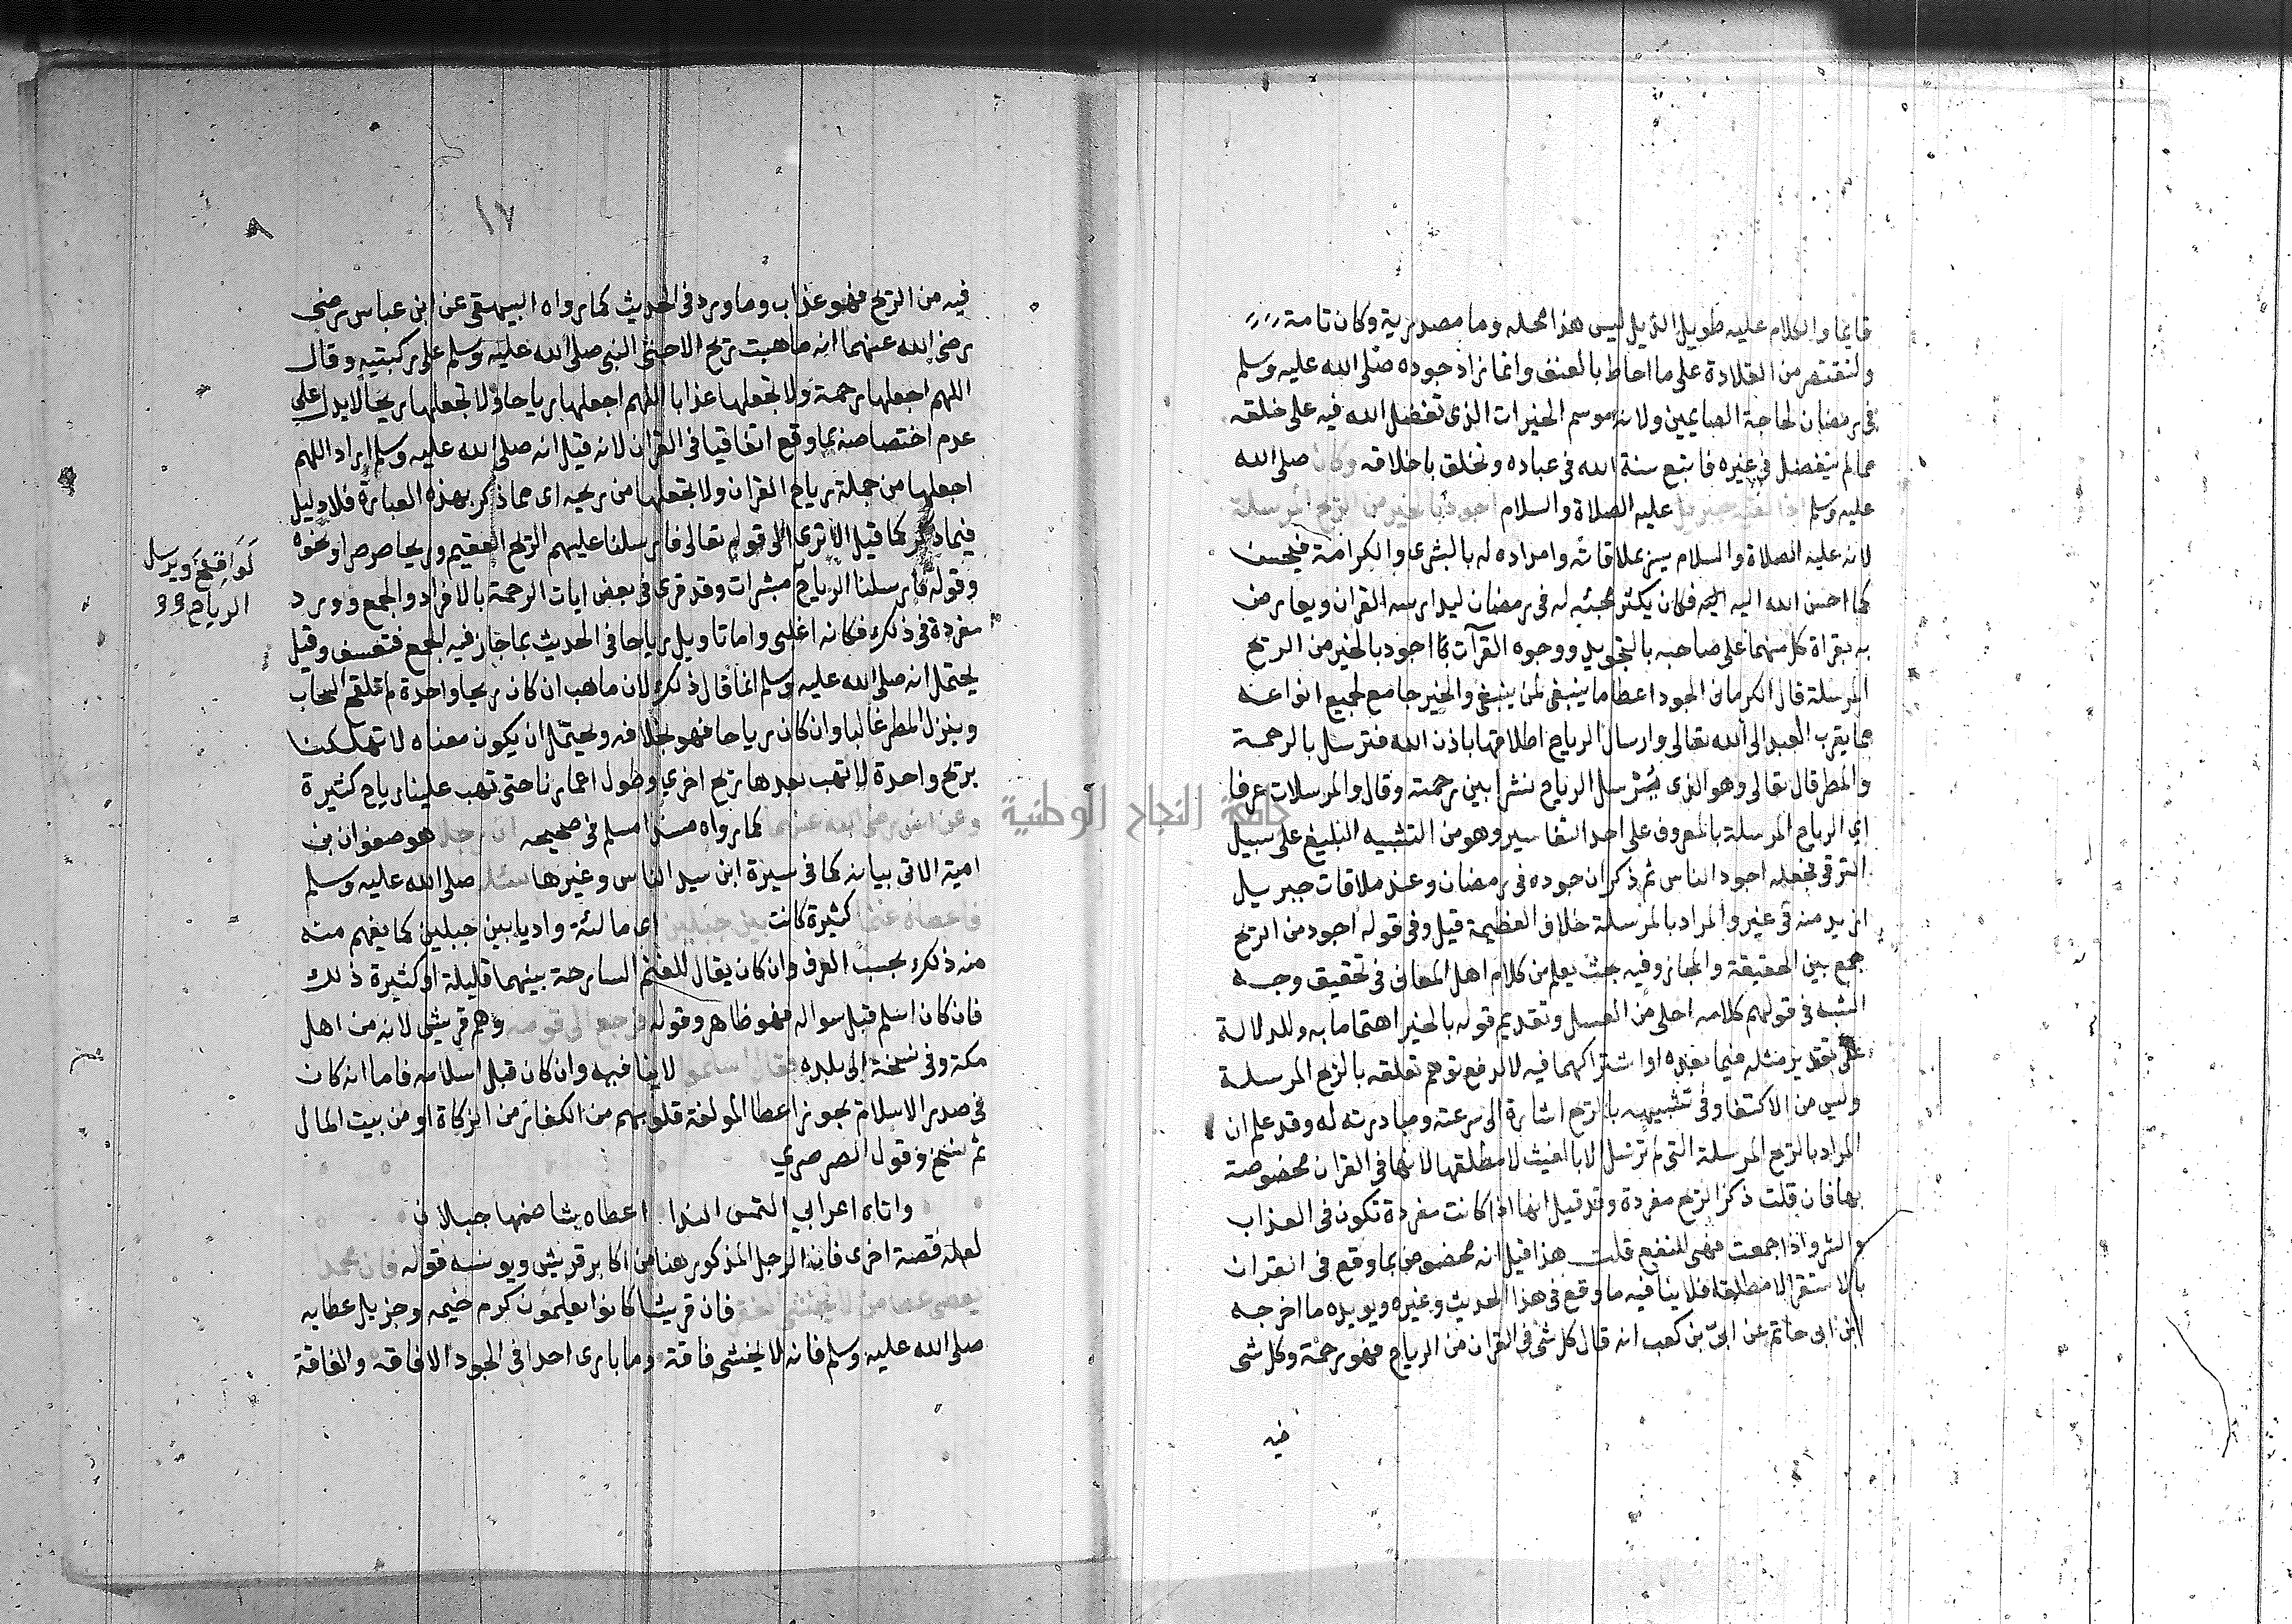 قايما والكلام عليه طويل الذيل ليس هذا محله وما مصدرية وكان تامة
ولنقتصر من القلادة على ما احاط بالعنق وانما زاد جوده صلى الله عليه وسلم
في رمضان لحاجة الصايمين ولانه موسم الخيرات الذي تفضل الله فيه على خلقه
مما لم يتفضل في غيره فاتبع سنة الله في عباده وتخلق باخلاقه وكان صلى الله
عليه وسلم اذا لقيه جبريل عليه الصلاة والسلام اجود بالخير من الريح المرسلة
لانه عليه الصلاة والسلام يسر بملاقاته وامداده له بالبشرى والكرامة فيحسن
كما احسن الله اليه فكان يكثر مجيئه له في رمضان ليدارسه القران ويعارض
به بقراة كل منهما على صاحبه بالتجويد ووجوه القرآت اجود بالخير من الريح
المرسلة قال الكرماني الجود اعطا ما ينبغي لمن ينبغي والخير جامع لجميع انواعه
مما يقرب العبد الى الله تعالى وارسال الرياح اطلاقها باذن الله فترسل بالرحمة
والمطر قال تعالى وهو الذي يرسل الرياح نشرا بين رحمته وقال والمرسلات عرفا
اي الرياح المرسلة بالمعروف على احد التفاسير وهو من التشبيه البليغ على سبيل
الترقي فجعله اجود الناس ثم ذكر ان جوده في رمضان وعند ملاقات جبريل
ازيد منه في غير والمراد بالمرسلة خلاف العظيمة قيل وفي قوله اجود من الريح
جمع بين الحقيقة والمجاز وفيه بحث يعلم من كلام اهل المعاني في تحقيق وجه
الشبه في قولهم كلامه احلى من العسل وتقديم قوله بالخير اهتماما به وللدلالة
على تقدير مثله فيما بعده او اشتراكهما فيه لا لدفع توهم تعلقه بالريح المرسلة
وليس من الاكتفا وفي تشبيهه بالريح اشارة الى سرعته ومبادرته له وقد علم ان
المراد بالريح المرسلة التي لم ترسل الا بالغيث لا مطلقها لانها في القران مخصوصة
بها فان قلت ذكر الريح مفردة وقد قيل انها اذا كانت مفردة تكون في العذاب
والشر واذا جمعت فهي للنفع قلت هذا قيل انه مخصوص بما وقع في القران
بالاستقرا لا مطلقا فلا ينافيه ما وقع في هذا الحديث وغيره ويويده ما اخرجه
ابن ابي حاتم عن ابيّ بن كعب انه قال كل شي في القران من الرياح فهو رحمة وكل شي
فيه
١٧
٨
فيه من الريح فهو عذاب وما ورد في الحديث كما رواه البيهقي عن ابن عباس رضي
رضي الله عنهما انه ما هبت ريح الا جثى النبي صلى الله عليه وسلم على ركبتيه وقال
اللهم اجعلها رحمة ولا تجعلها عذابا اللهم اجعلها رياحا ولا تجعلها ريحا لا يدل على
عدم اختصاصه بما وقع اتفاقيا في القران لانه قيل انه صلى الله عليه وسلم اراد اللهم
اجعلها من جملة رياح القران ولا تجعلها من ريحه اي مما ذكر بهذه العبارة فلا دليل
فيما ذكر كما قيل الا ترى الى قوله تعالى فارسلنا عليهم الريح العقيم وريحا صرصرا ونحوه
وقوله فارسلنا الرياح مبشرات وقد قري في بعض ايات الرحمة بالافراد والجمع وورد
مفردة في ذلك فكانه اغلبي واما تاويل رياحا في الحديث بما جاز فيه الجمع فتعسف وقيل
يحتمل انه صلى الله عليه وسلم انما قال ذلك لان ما هب ان كان ريحا واحدة لم تلقح السحاب
وينزل المطر غالبا وان كان رياحا فهو بخلافه ويحتمل ان يكون معناه لا تهلكنا
بريح واحدة لا تهب بعدها ريح اخري وطول اعمارنا حتى تهب علينا رياح كثيرة
وعن انس رضي الله عنهما كما رواه مسندا مسلم في صحيحه ان رجلا هو صفوان بن
امية الاتي بيانه كما في سيرة ابن سيد الناس وغيرها سئل صلى الله عليه وسلم
فاعطاه غنما كثيرة كانت بين جبلين اي مالئة واديا بين جبلين كما يفهم منه
منه ذلك بحسب العرف وان كان يقال للغنم السارحة بينهما قليلة او كثيرة ذلك
فان كان اسلم قبل سواله فهو ظاهر وقوله فرجع الى قومه وهم قريش لانه من اهل
مكة وفي نسخة الى بلده فقال اسلموا لا ينافيه وان كان قبل اسلامه فاما انه كان
في صدر الاسلام يجوز اعطا المولفة قلوبهم من الكفار من الزكاة او من بيت المال
ثم نسخ وقول الصرصري
واتاه اعرابي التمس الندا اعطاه شا ضمها جبلان
لعله قصة اخرى فان الرجل المذكور هنا من اكابر قريش ويونسه قوله فان محمد
يعطي عطا من لا يخشى الفقر فان قريشا كانوا يعلمون كرم خيمه وجزيل عطايه
صلى الله عليه وسلم فانه لا يخشى فاقة وما بارى احدا في الجود الا فاقه والفاقة
لَوَاقِحَ ويرسل
الرياح
جامعة النجاح الوطنية